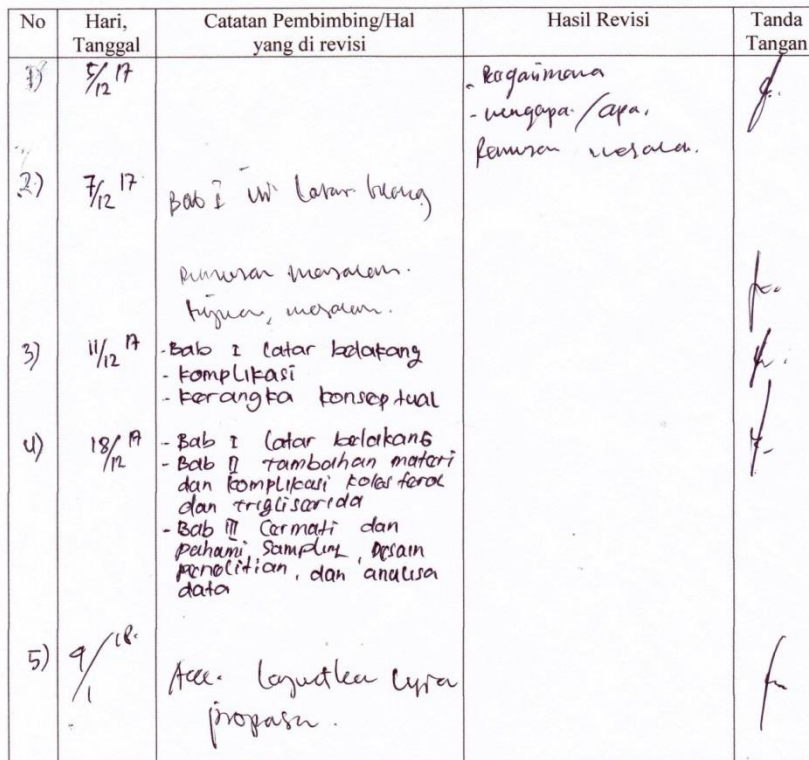 No Hari, Tanggal Catatan Pembimbing/Hal yang di revisi Hasil Revisi Tanda Tangan
1) 5/12 17 - Bagaimana
- mengapa / apa.
Rumusan masalah.
2) 7/12 17 Bab I latar
Rumusan masalah.
tujuan, masalah.
3) 11/12 17 - Bab I latar belakang
- komplikasi
- kerangka konseptual
4) 18/12 17 - Bab I latar belakang
- Bab II tambahan materi
dan komplikasi kolesterol
dan trigliserida
- Bab III Cermati dan
pahami, Sampling, Desain
penelitian, dan analisa
data
5) 9/1 18. Acc.